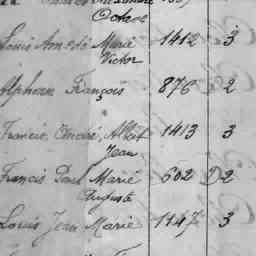 Octave
Louis Amédé Marie 1412 3
Victor
Alphonse François 876 2
Francis, Omoré, Albert 1413 3
Jean
Francis Paul Marie 602 D2
Auguste
Louis Jean Marie 1147 3